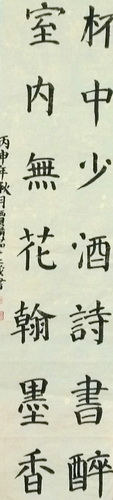 杯中少酒詩書醉
室内無花翰墨香
丙申年秋月